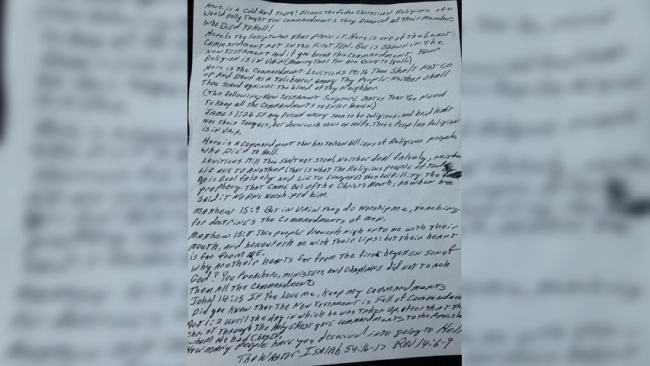 Here is a Cold Hard Truth! Because the Judeo Christian Religions of the
World Only Taught Ten Commandments They Deceived all Their Members,
Who Died To Hell!
Here's Thy Scriptures That Prove it. Here is one of the Least
Commandment not in the First Ten. But is Shown in The
New Testament and if you break The Commandment Your
Religion is in Vain
Here is the Commandment Leviticus 19:16 Thou Shalt Not Go
up And Down As a Talebearer among Thy People: Neither shall
Thou Stand against The blood of Thy Neighbor
(The Following New Testament Scripture States That You Need
To Keep all the Commandments to Enter Heaven)
James 1:26 If Any person among you to be religious, and
Not Their Tongues, but deceiveth own Those Peoples Religion
is in vain.
Here is a Command ment that has taken billions of Religious people,
Who Died to Hell.
Leviticus 19:11 Thou Shalt not Steal, Neither deal falsely, neither
Lie one to Another (That is what The Religious people of
is Deal falsely and Lie to Everyone) Thus fulfilling The
prophecy That Came Out of the Christ's Mouth, when he
Said it No One Worshiped him.
Mathew 15:9 But in vain They do Worship me, teaching
for doctrines The Commandments of men.
Mathew 15:8 This people draweth nigh unto me with their
mouth, and honoureth me with Their Lips: but their heart
is far from me.
Why are their hearts far from the first begotten son of
God? You Preachers, ministers and Chaplains did not Teach
Them All the Commandments
John 14:15 If You Love me, keep my Commandments
Did you Know That The New Testament is Full of Commandments
1:2 Until the day in which he was Taken Up, after that he
Through The Holy Ghost gave commandments to the Apostles
whom He had Chosen.
How many people have you deceived into going to Hell
The Waster Isaiah 54:16-17 Rev 14:6-9